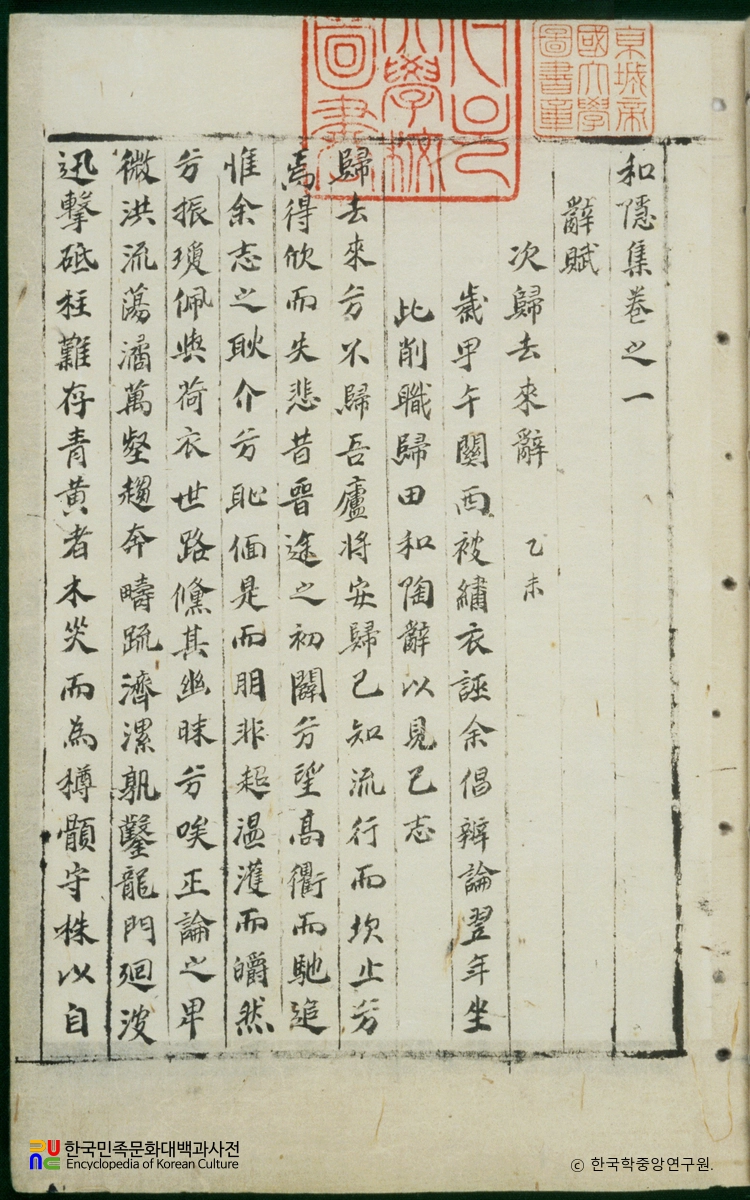 和隱集卷之一
辭賦
次歸去來辭 乙未
歲甲午關西被繡衣誣余倡辨論翌年坐
此削職歸田和陶辭以見已志
歸去來兮不歸吾廬將安歸已知流行而坎止兮
焉得欣而失悲昔晉途之初闢兮望高衢而馳追
惟余志之耿介兮恥偭是而朋非超溫濩而皭然
兮振瓊佩與荷衣世路儻其幽昧兮唉正論之卑
微洪流蕩潏萬壑趨奔疇疏濟漯孰鑿龍門廻波
迅擊砥柱難存青黃者木災而為樽顝守株以自
京城帝
國大學
圖書章
한국민족문화대백과사전
Encyclopedia of Korean Culture
ⓒ 한국학중앙연구원.